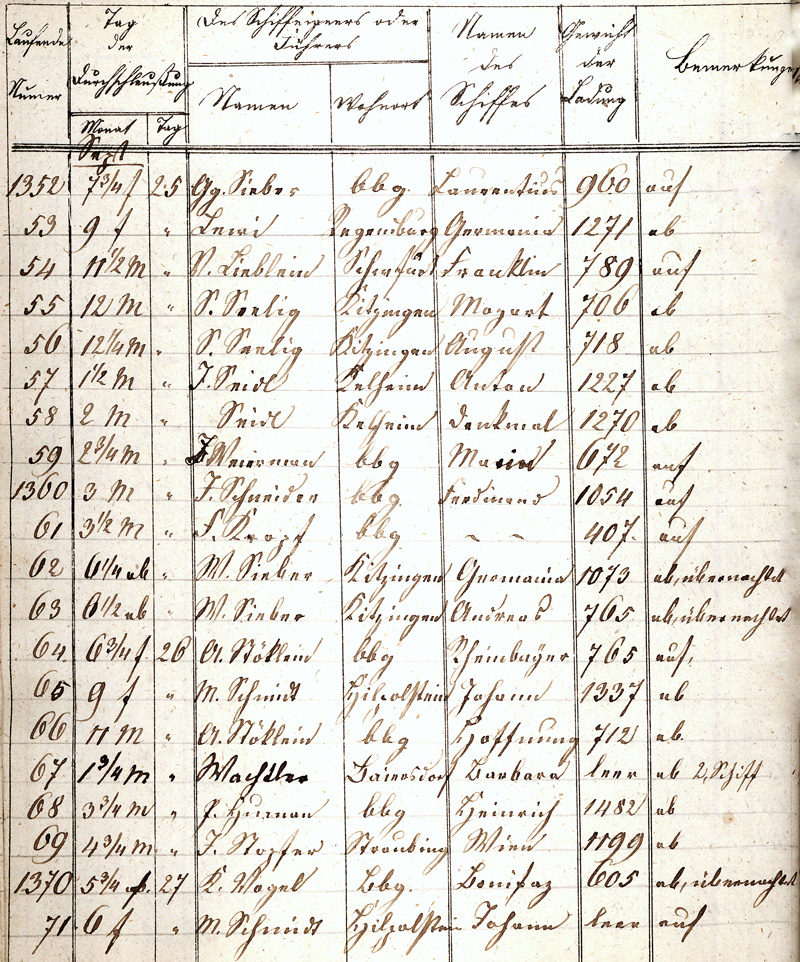 Laufende Numer | Tag der Durchschleußung | Des Schiffeigners oder Führers | Namen des Schiffes | Gewicht der Ladung | Bemerkungen
Monat | Tag | Namen | Wohnort
Sept
1352 7 3/4 f 25 Gg. Sieber bbg. Laurentius 960 auf
53 9 f " Lewi Regensburg Germania 1271 ab
54 11 1/2 M " N. Lieblein Schwfurt Franklin 789 auf
55 12 M " S. Seelig Kitzingen Mozart 706 ab
56 12 1/4 M " S. Seelig Kitzingen August 718 ab
57 1 1/2 M " J. Seidl Kelheim Anton 1227 ab
58 2 M " Seidl Kelheim Denkmal 1270 ab
59 2 3/4 M " J Weierman bbg Main 672 auf
1360 3 M " J. Schneider bbg. Ferdinand 1054 auf
61 3 1/2 M " F. Kropf bbg – – 407. auf
62 6 1/4 ab " W. Sieber Kitzingen Germania 1073 ab, übernachtet
63 6 1/2 ab " W. Sieber Kitzingen Andreas 765 ab, übernachtet
64 6 3/4 f 26 A. Stöklein bbg Rheinbayer 765 auf,
65 9 f " M. Schmidt Hilpolstein Johann 1337 ab
66 11 M " A. Stöklein bbg Hoffnung 712 ab
67 1 3/4 M " Wachtler Baiersdorf Barbara leer ab 2, Schiff
68 3 3/4 M " bbg Heinrich 1482 ab
69 4 3/4 M " J. Stopfer Straubing Wien 1199 ab
1370 5 3/4 27 K. Vogel Bbg. Bonifaz 605 ab, übernachtet
71 6 f " M. Schmidt Hilpolstein Johann leer auf